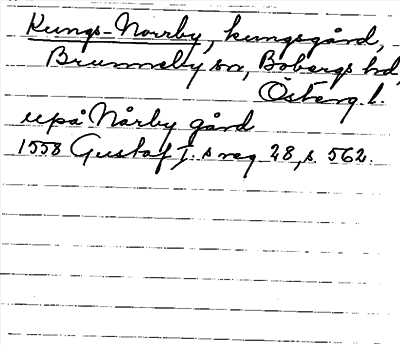 Kungs-Norrby, kungsgård,
Brunneby sn, Bobergs hd,
Österg. l.
upå Nårby gård
1558 Gustaf I. s reg 28, s. 562.